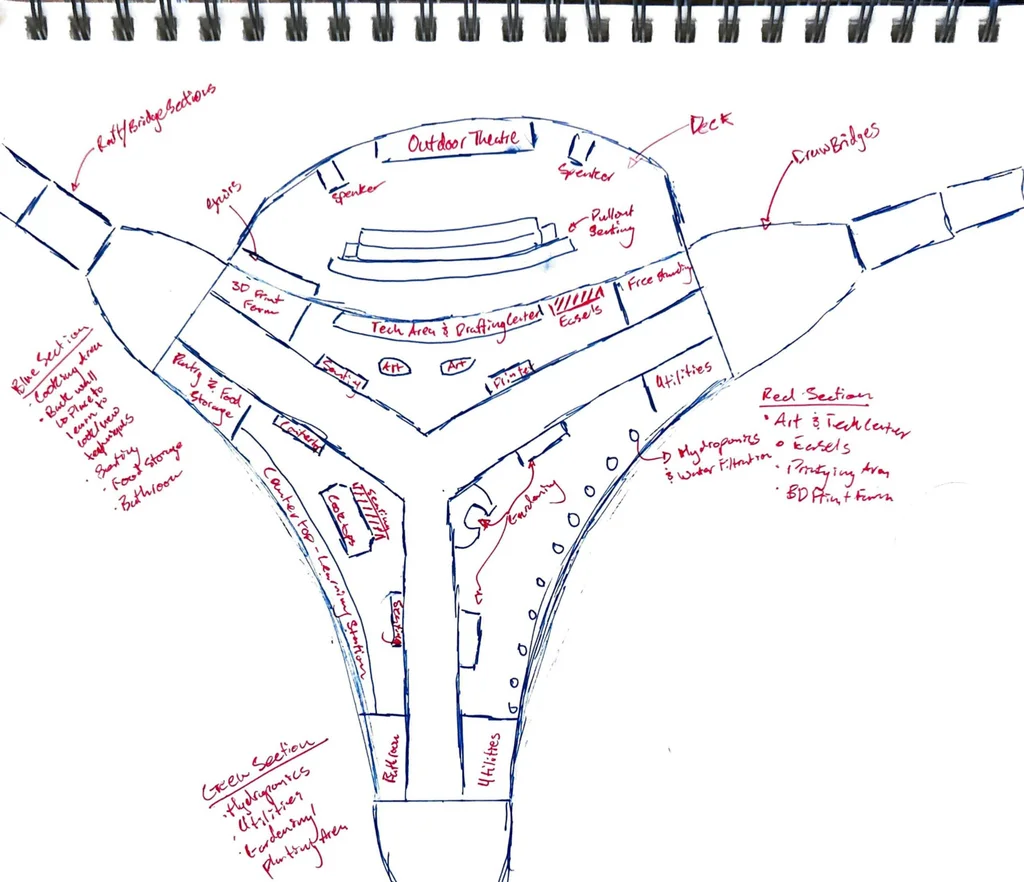 Raft/Bridge Sections
Outdoor Theatre
Deck
DrawBridges
Speaker
Speaker
Pullout
Seating
3D Print
Farm
Free Standing
Tech Area & Drafting Center
Easels
Seating
Art
Art
Printer
Pantry & Food
Storage
Utilities
Blue Section
· Cooking Area
· Back wall
Place to
learn to
cook/new
techniques
· Seating
· Food Storage
· Bathroom
Red Section
· Art & Tech Center
· Easels
· Printying Area
· 3D Print Farm
Hydroponics
& Water Filtration
Gardening
Seating
Cooktops
Countertop - Learning Station
Bathroom
Utilities
Green Section
· Hydroponics
· Utilities
· Gardening/
Planting Area